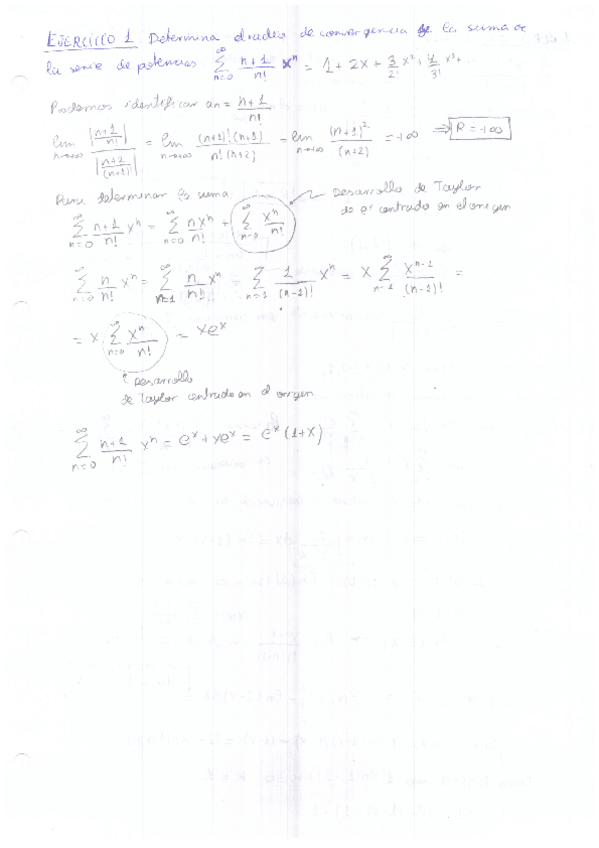 EJERCICIO 1 Determina el radio de convergencia y la suma de
la serie de potencias ∑_{n=0}^{∞} (n+1)/n! x^n = 1 + 2x + 3/2! x² + 4/3! x³ +
Podemos identificar an = (n+1)/n!
lim_{n→+∞} |(n+1)/n!| / |(n+2)/(n+1)!| = lim_{n→+∞} (n+1)!(n+1) / n!(n+2) = lim_{n→+∞} (n+1)²/(n+2) = +∞ ⇒ R = +∞
Para determinar la suma
Desarrollo de Taylor
de eˣ centrado en el origen
∑_{n=0}^{∞} (n+1)/n! x^n = ∑_{n=0}^{∞} n x^n/n! + ∑_{n=0}^{∞} x^n/n!
∑_{n=0}^{∞} n/n! x^n = ∑_{n=1}^{∞} n/n! x^n = ∑_{n=1}^{∞} 1/(n-1)! x^n = x ∑_{n=1}^{∞} x^{n-1}/(n-1)! =
= x ∑_{n=0}^{∞} x^n/n! = xeˣ
Desarrollo
de Taylor centrado en el origen
∑_{n=0}^{∞} (n+1)/n! x^n = eˣ + xeˣ = eˣ(1+x)